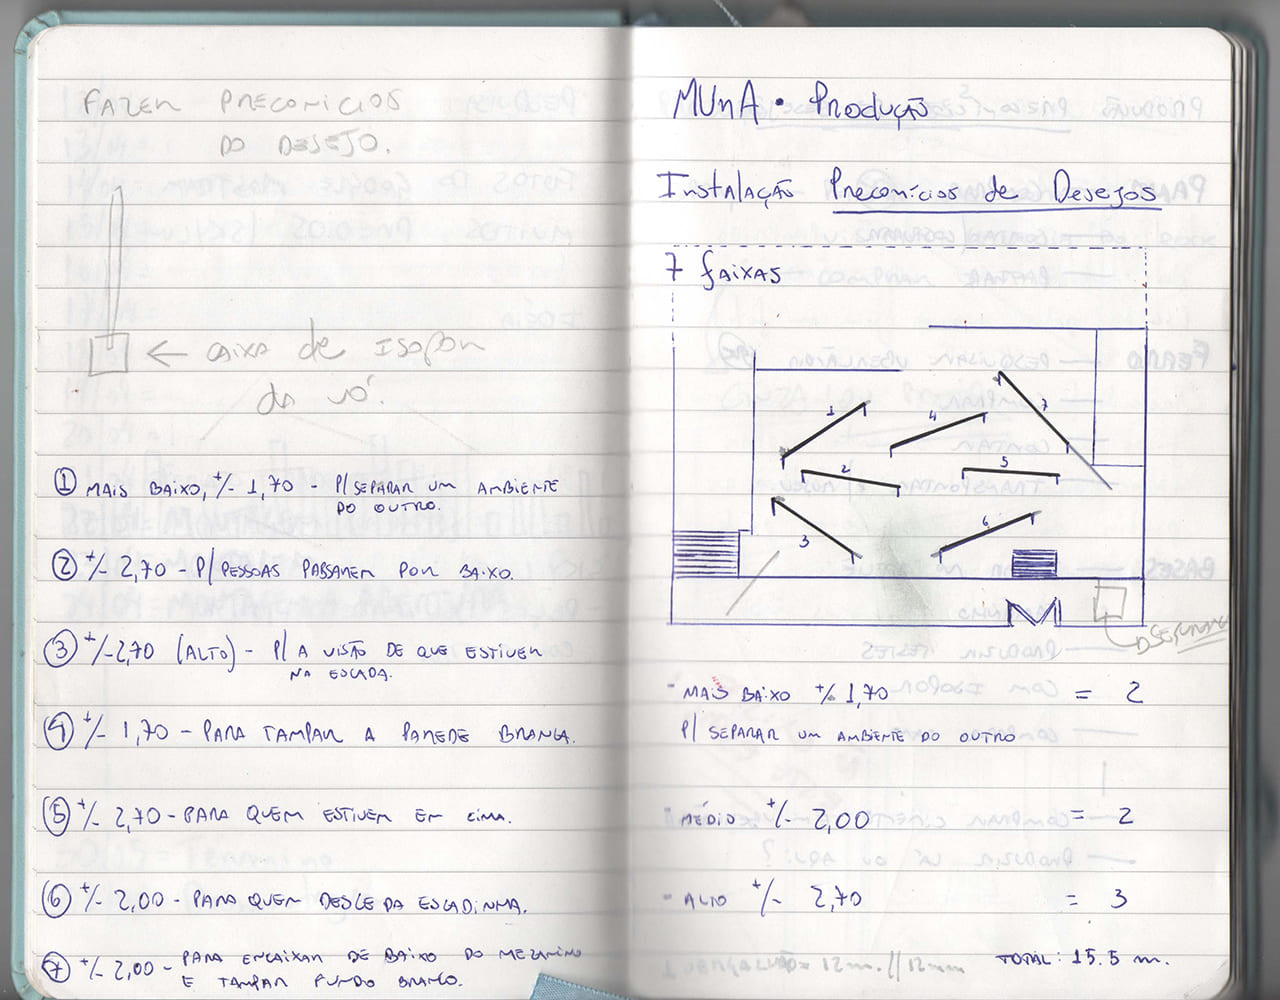 FAZER PRECONÍCIOS
DO DESEJO.
← CAIXA DE ISOPOR
DA VÓ.
① MAIS BAIXO, +/- 1,70 - P/ SEPARAR UM AMBIENTE
DO OUTRO.
② +/- 2,70 - P/ PESSOAS PASSAREM POR BAIXO.
③ +/- 2,70 (ALTO) - P/ A VISÃO DE QUE ESTIVER
NA ESCADA.
④ +/- 1,70 - PARA TAMPAR A PAREDE BRANCA.
⑤ +/- 2,70 - PARA QUEM ESTIVER EM CIMA.
⑥ +/- 2,00 - PARA QUEM DESCE DA ESCADINHA.
⑦ +/- 2,00 - PARA ENCAIXAR DE BAIXO DO MEZANINO
E TAMPAR FUNDO BRANCO.
MUnA • Produção
Instalação Preconícios de Desejos
7 faixas
1
4
7
2
5
3
6
- MAIS BAIXO +/- 1,70 = 2
P/ SEPARAR UM AMBIENTE DO OUTRO
- MÉDIO +/- 2,00 = 2
- ALTO +/- 2,70 = 3
TOTAL: 15.5 m.